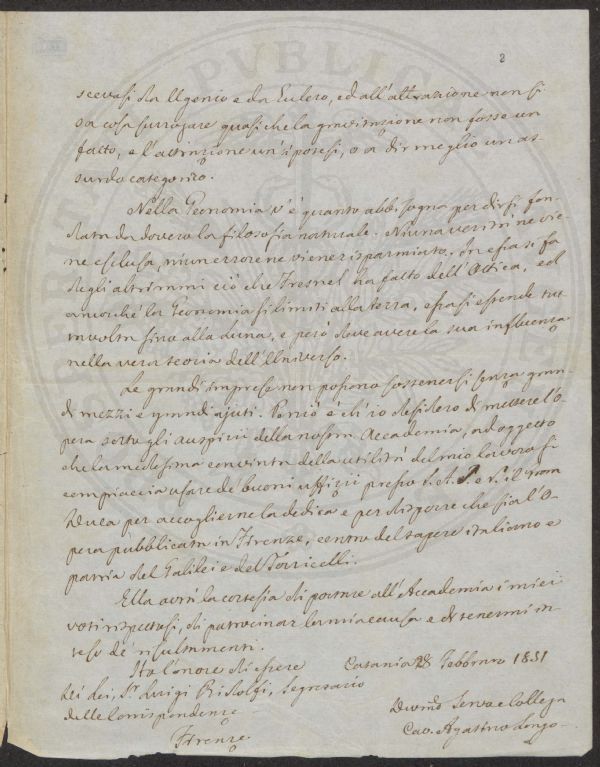 2
scevasi da Ugenio e da Eulero, ed all'attrazione non si
sa cosa surrogare quasi che la gravitazione non fosse un
fatto, e l'attrazione un'ipotesi, o a dir meglio un as-
surdo categorico.
Nella Geonomia v'è quanto abbisogna per dirsi fon-
data da dovero la filosofia naturale. Niuna verità ne vie-
ne esclusa, niun errore ne viene risparmiato. In essa si fa
degli altri ciò che Fresnel ha fatto dell'Ottica, ed
ancorché la Geonomia si limiti alla terra, essa si estende tut-
tavolta sino alla Luna, e però deve avere la sua influenza
nella vera teoria dell'Universo.
Le grandi imprese non possono sostenersi senza gran-
di mezzi e grandi ajuti. Perciò è ch'io desidero di mettere l'o-
pera sotto gli auspizii della nostra Accademia, ad oggetto
che la medesima convinta della utilità del mio lavoro si
compiaccia usare de' buoni uffizii presso S. A. I. e R. il gran
Duca per accoglierne la dedica e per disporre che sia l'o-
pera pubblicata in Firenze, centro del sapere italiano e
patria del Galilei e del Torricelli.
Ella avrà la cortesia di portare all'Accademia i miei
voti rispettosi, di patrocinar la mia causa e di tenermi in-
teso de' risultamenti.
Ho l'onore di essere Catania 28 Febbraro 1851
Di Lei, Sr. Luigi Ridolfi, Segretario
delle Corrispondenze Devmo Servo e Collega
Firenze Cav. Agatino Longo